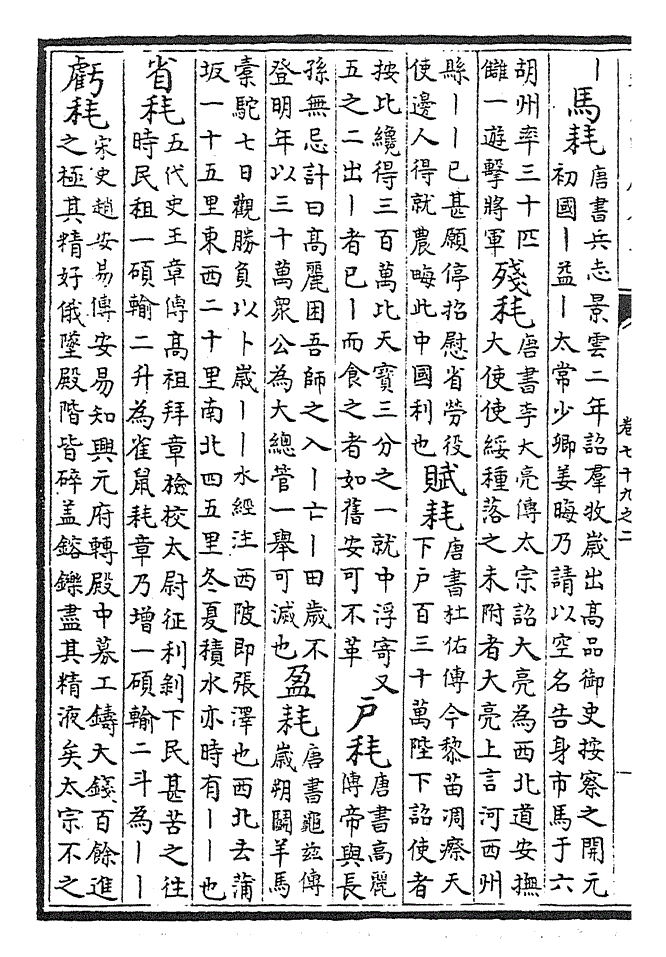 卷七十九之二
丨
馬耗
唐書兵志景雲二年詔羣牧歲出高品御史按察之開元
初國丨益丨太常少卿姜晦乃請以空名告身市馬于六
胡州率三十匹
讎一遊擊將軍
殘耗
唐書李大亮傳太宗詔大亮為西北道安撫
大使使綏種落之未附者大亮上言河西州
縣丨丨已甚願停招慰省勞役
使邊人得就農晦此中國利也
賦耗
唐書杜佑傳今黎苗凋瘵天
下户百三十萬陛下詔使者
按比纔得三百萬比天寶三分之一就中浮寄又
五之二出丨者已丨而食之者如舊安可不革
户耗
唐書高麗
傳帝與長
孫無忌計曰高麗困吾師之入丨亡丨田歲不
登明年以三十萬衆公為大總管一舉可滅也
盈耗
唐書龜兹傳
歲朔鬭羊馬
橐駝七日觀勝負以卜歲丨丨水經注西陂即張澤也西北去蒲
坂一十五里東西二十里南北四五里冬夏積水亦時有丨丨也
省耗
五代史王章傳高祖拜章檢校太尉征利剝下民甚苦之往
時民租一碩輸二升為雀鼠耗章乃增一碩輸二斗為丨丨
虧耗
宋史趙安易傳安易知興元府轉殿中募工鑄大錢百餘進
之極其精好俄墜殿階皆碎盖鎔鑠盡其精液矣太宗不之